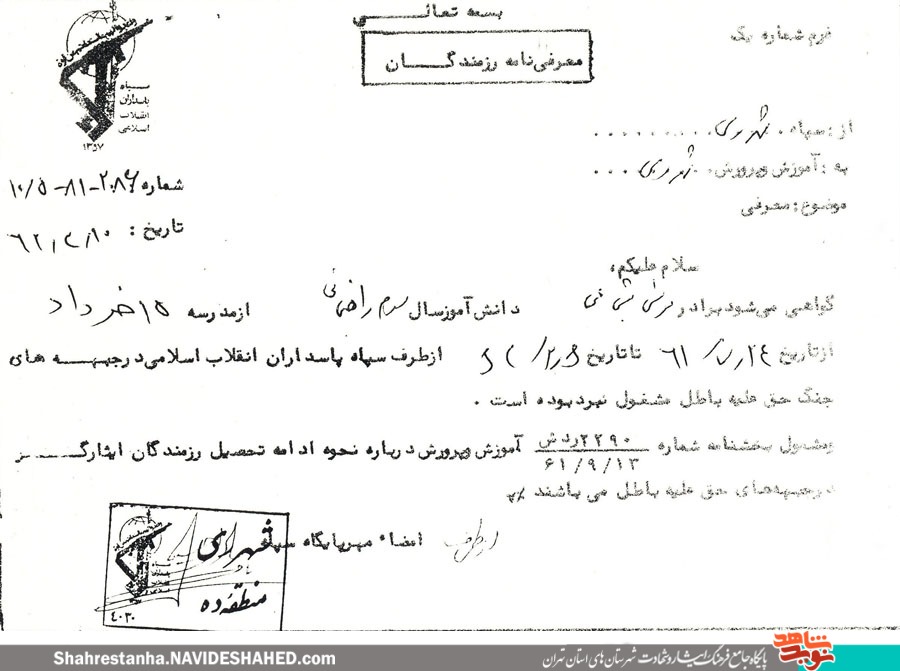 بسمه تعالی
فرم شماره یک
معرفی‌نامه رزمندگان
سپاه
پاسداران
انقلاب
اسلامی
۱۳۵۷
از : سپاه . شهرری . . . . . . . . . .
به : آموزش وپرورش . شهرری . . . .
موضوع : معرفی
شماره ۲۰۸۶-۸۱-۱۰/۵
تاریخ :
سلام علیکم ،
گواهی می‌شود برادر دانش‌آموز سال سوم راهنمائی از مدرسه ۱۵ خرداد
از تاریخ ۶۱/۷/۲۴ تا تاریخ از طرف سپاه پاسداران انقلاب اسلامی در جبهه های
جنگ حق علیه باطل مشغول نبرد بوده است .
ومشمول بخشنامه شماره ۲۲۹۰ ۶۱/۹/۱۳ آموزش وپرورش درباره نحوه ادامه تحصیل رزمندگان ایثارگر
درجبهه‌های حق علیه باطل می باشند
امضاء مهرپایگاه سپاه
شهرری
منطقه ده
۴۰۳۰
Shahrestanha.NAVIDESHAHED.com
پایگاه جامع فرهنگ ایثار و شهادت شهرستان های استان تهران
نوید شاهد